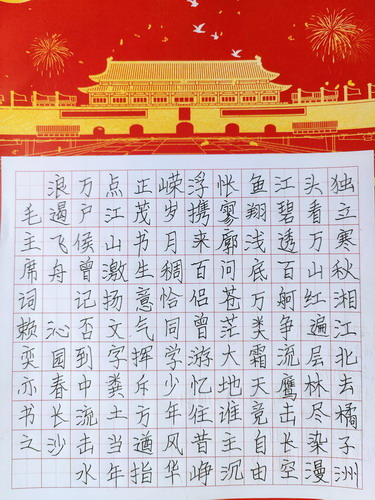 独立寒秋湘江北去橘子洲
头看万山红遍层林尽染漫
江碧透百舸争流鹰击长空
鱼翔浅底万类霜天竟自由
怅寥廓问苍茫大地谁主沉
浮携来百侣曾游忆往昔峥
嵘岁月稠恰同学少年风华
正茂书生意气挥斥方遒指
点江山激扬文字粪土当年
万户侯曾记否到中流击水
浪遏飞舟 沁园春长沙
毛主席词 赖奕亦书之